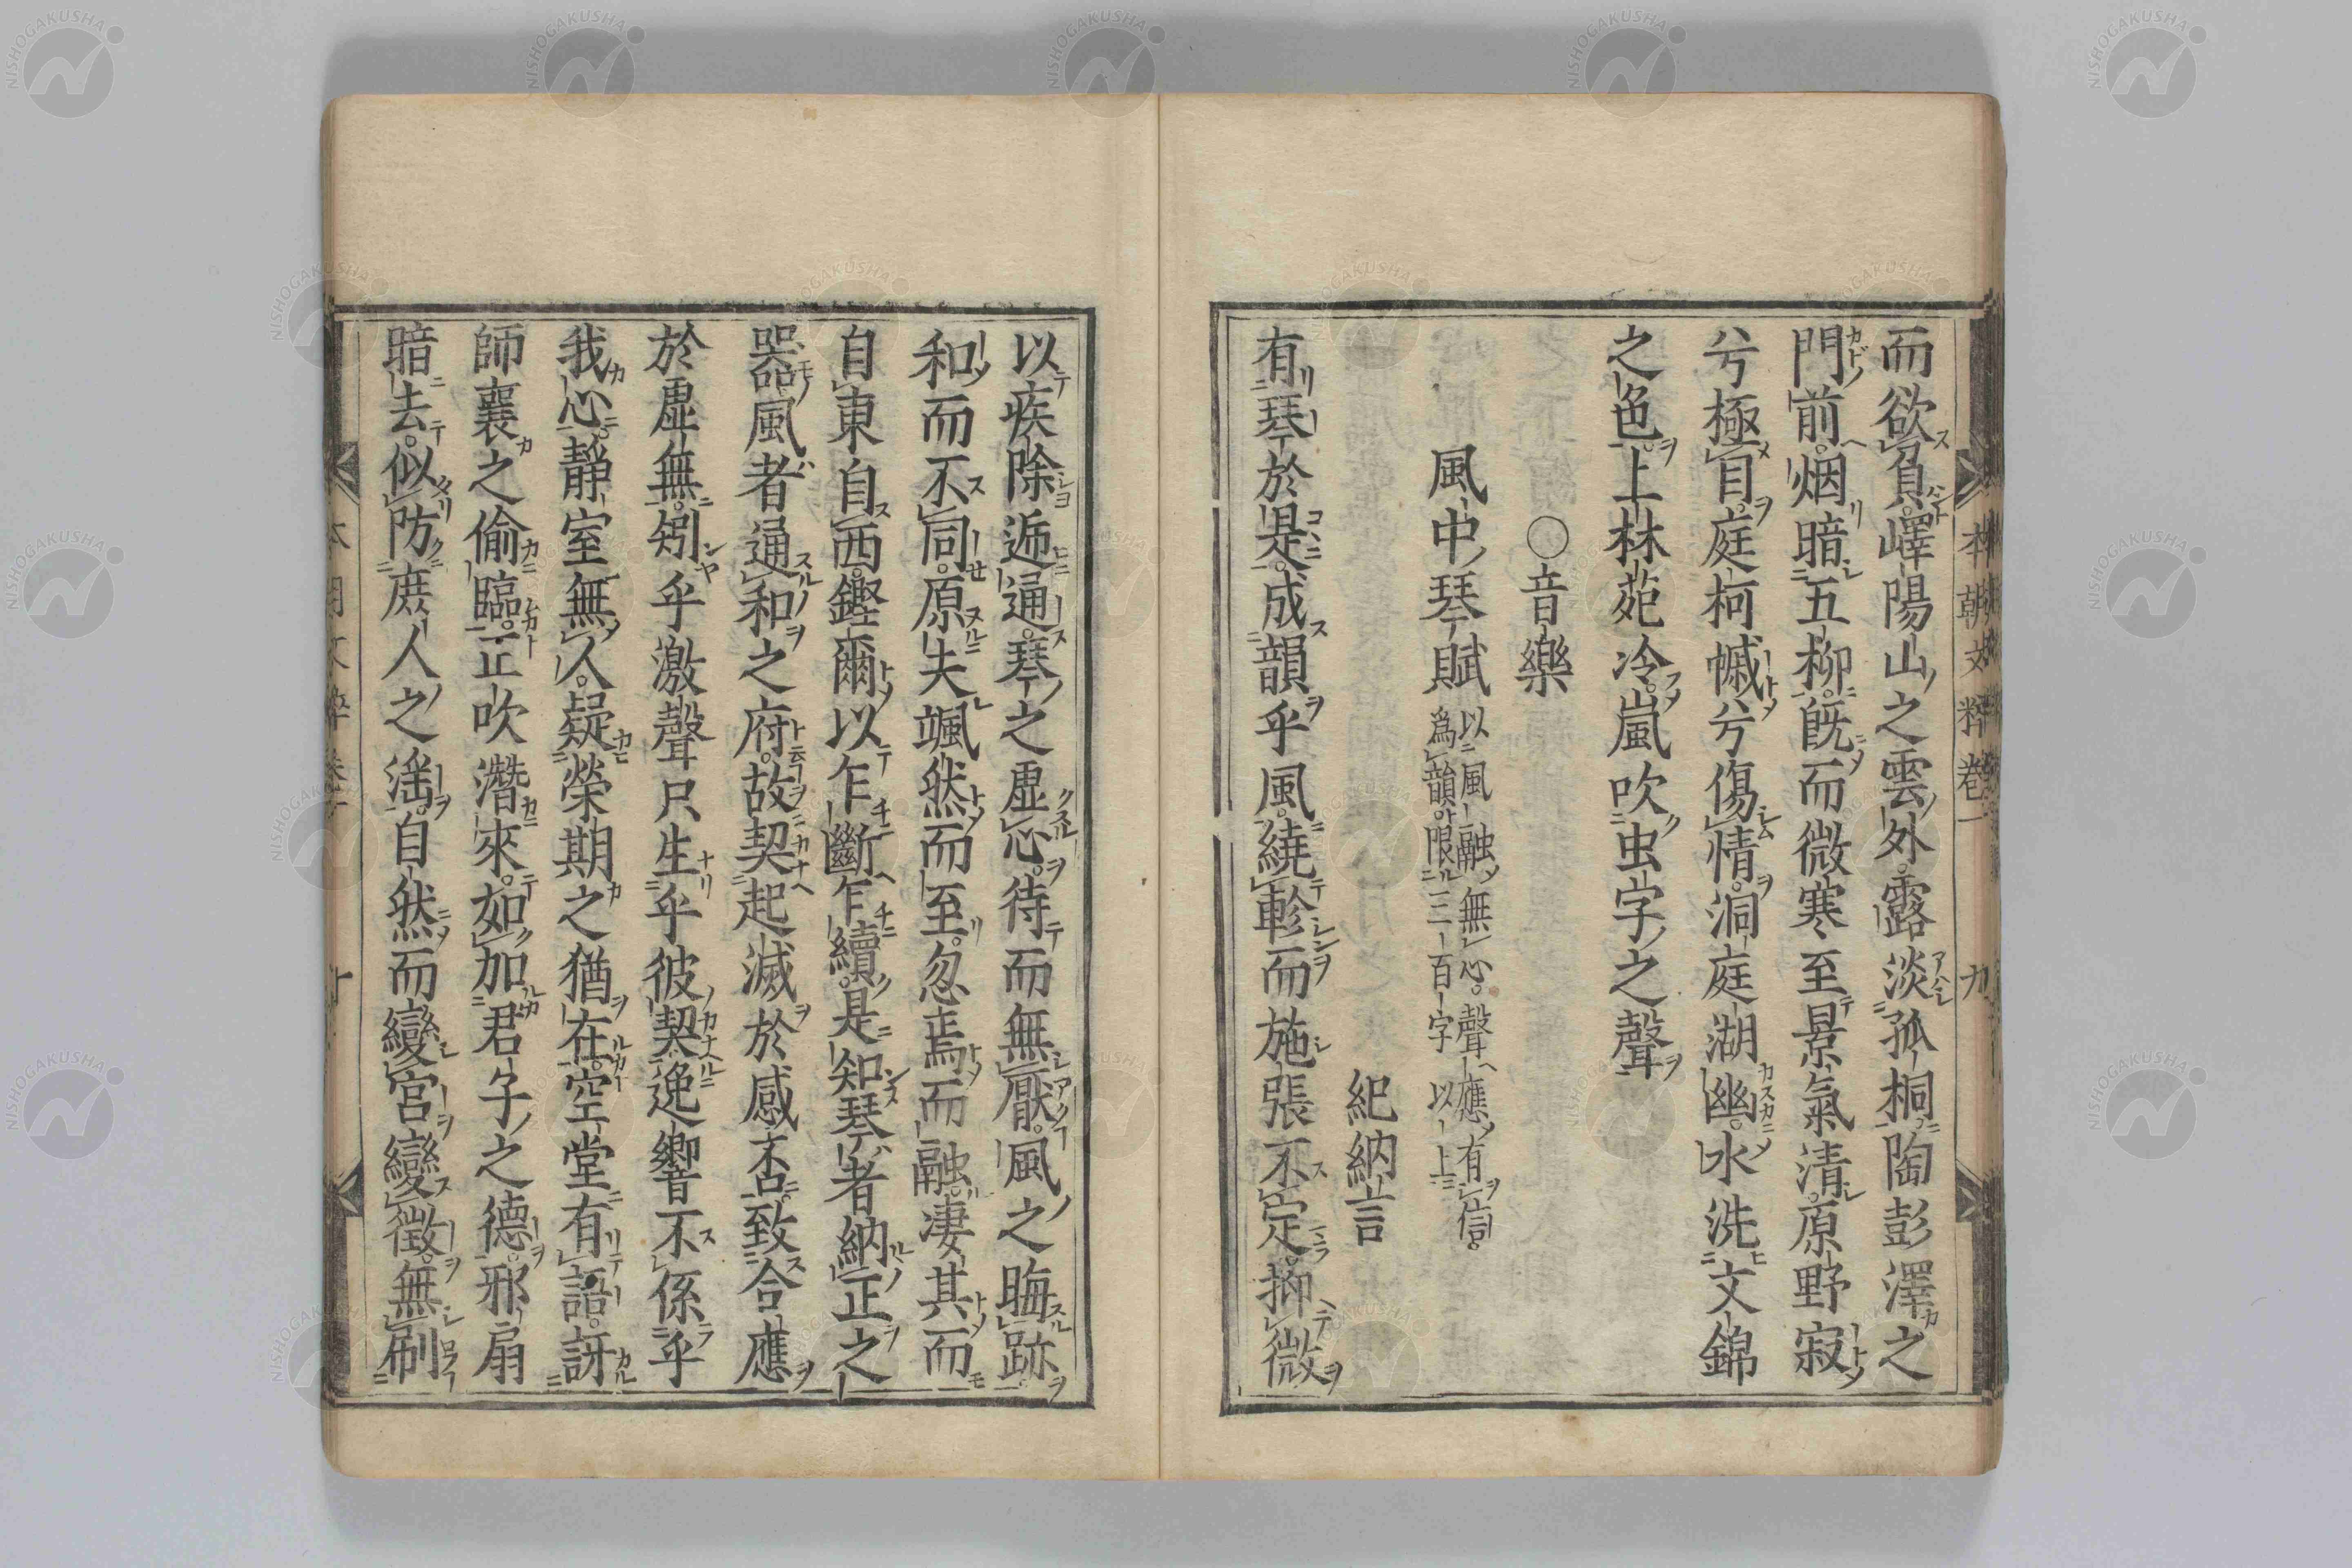 而欲負嶧陽山之雲外露淡孤桐陶彭澤之
門前烟暗五柳既而微寒至景氣清原野寂
兮極目庭柯槭兮傷情洞庭湖幽水洗文錦
之色上林苑冷嵐吹虫字之聲
〇音樂
風中琴賦
以風融無心聲應有信
爲韻限三百字以上
紀納言
有琴於是成韻乎風繞軫而施張不定抑微
本朝文粹卷一
九
以疾除遁通琴之虚心待而無厭風之晦跡
和而不同原夫颯然而至忽焉而融凄其而
自東自西鏗爾以乍斷乍續是知琴者納正之
器風者通和之府故契起滅於感否致合應
於虚無矧乎激聲只生乎彼契逸響不係乎
我心靜室無人疑榮期之猶在空堂有語訝
師襄之偷臨正吹潛來如加君子之德邪扇
暗去似防庶人之滛自然而變宮變徵無刷
NISHOGAKUSHA